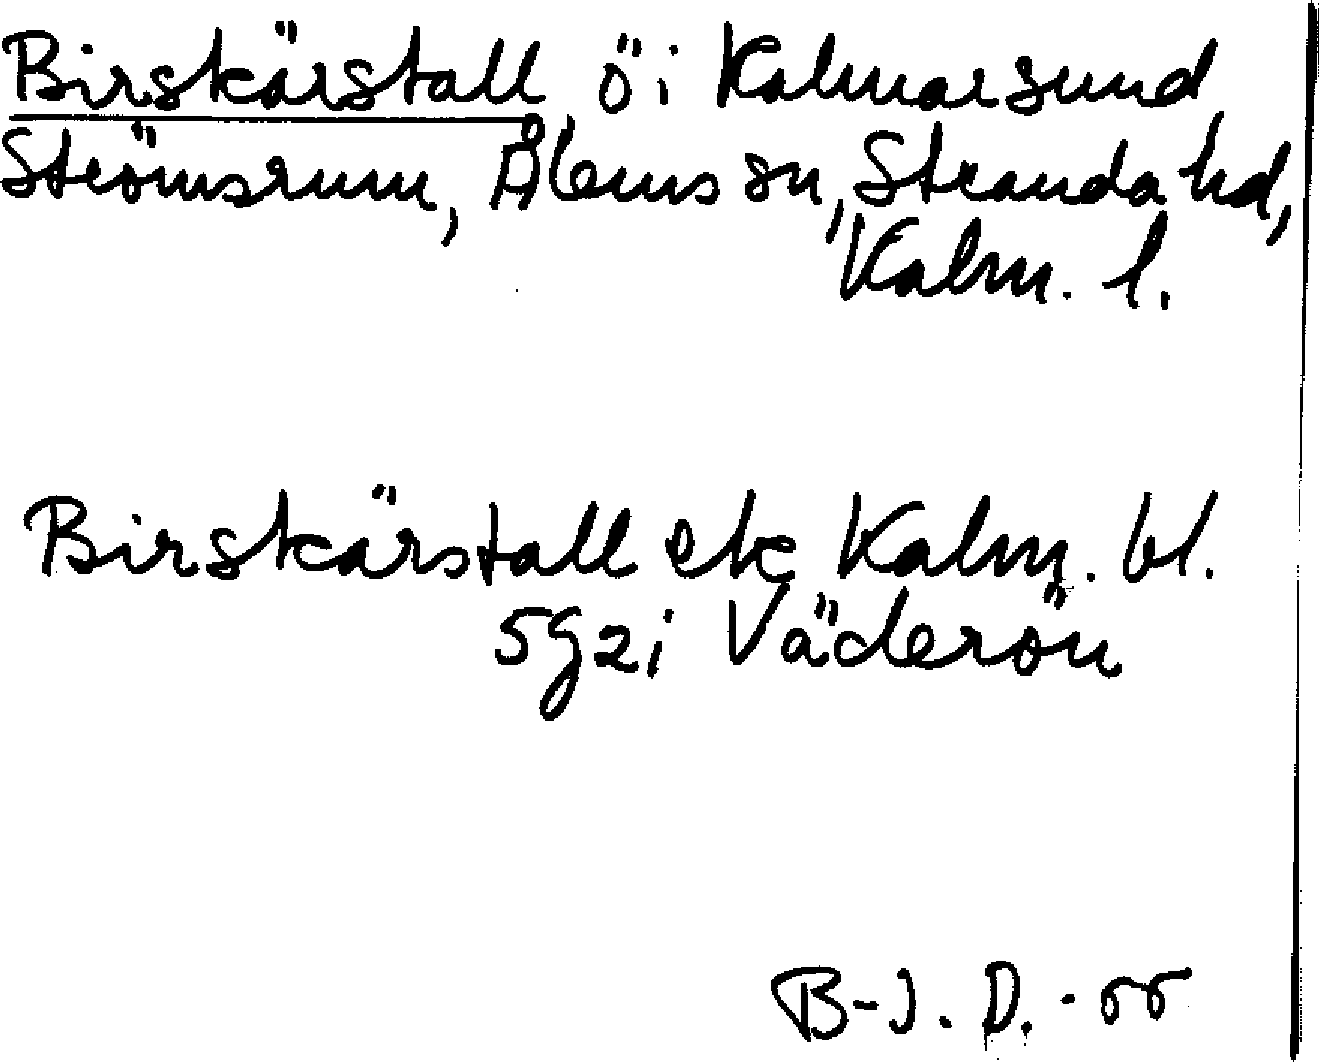 Birskärstall, ö i Kalmarsund,
Strömsrum, Ålems sn, Stranda hd,
Kalm. l.
Birskärstall ek Kalm. bl.
5g2i Väderön
B-J. D. -55